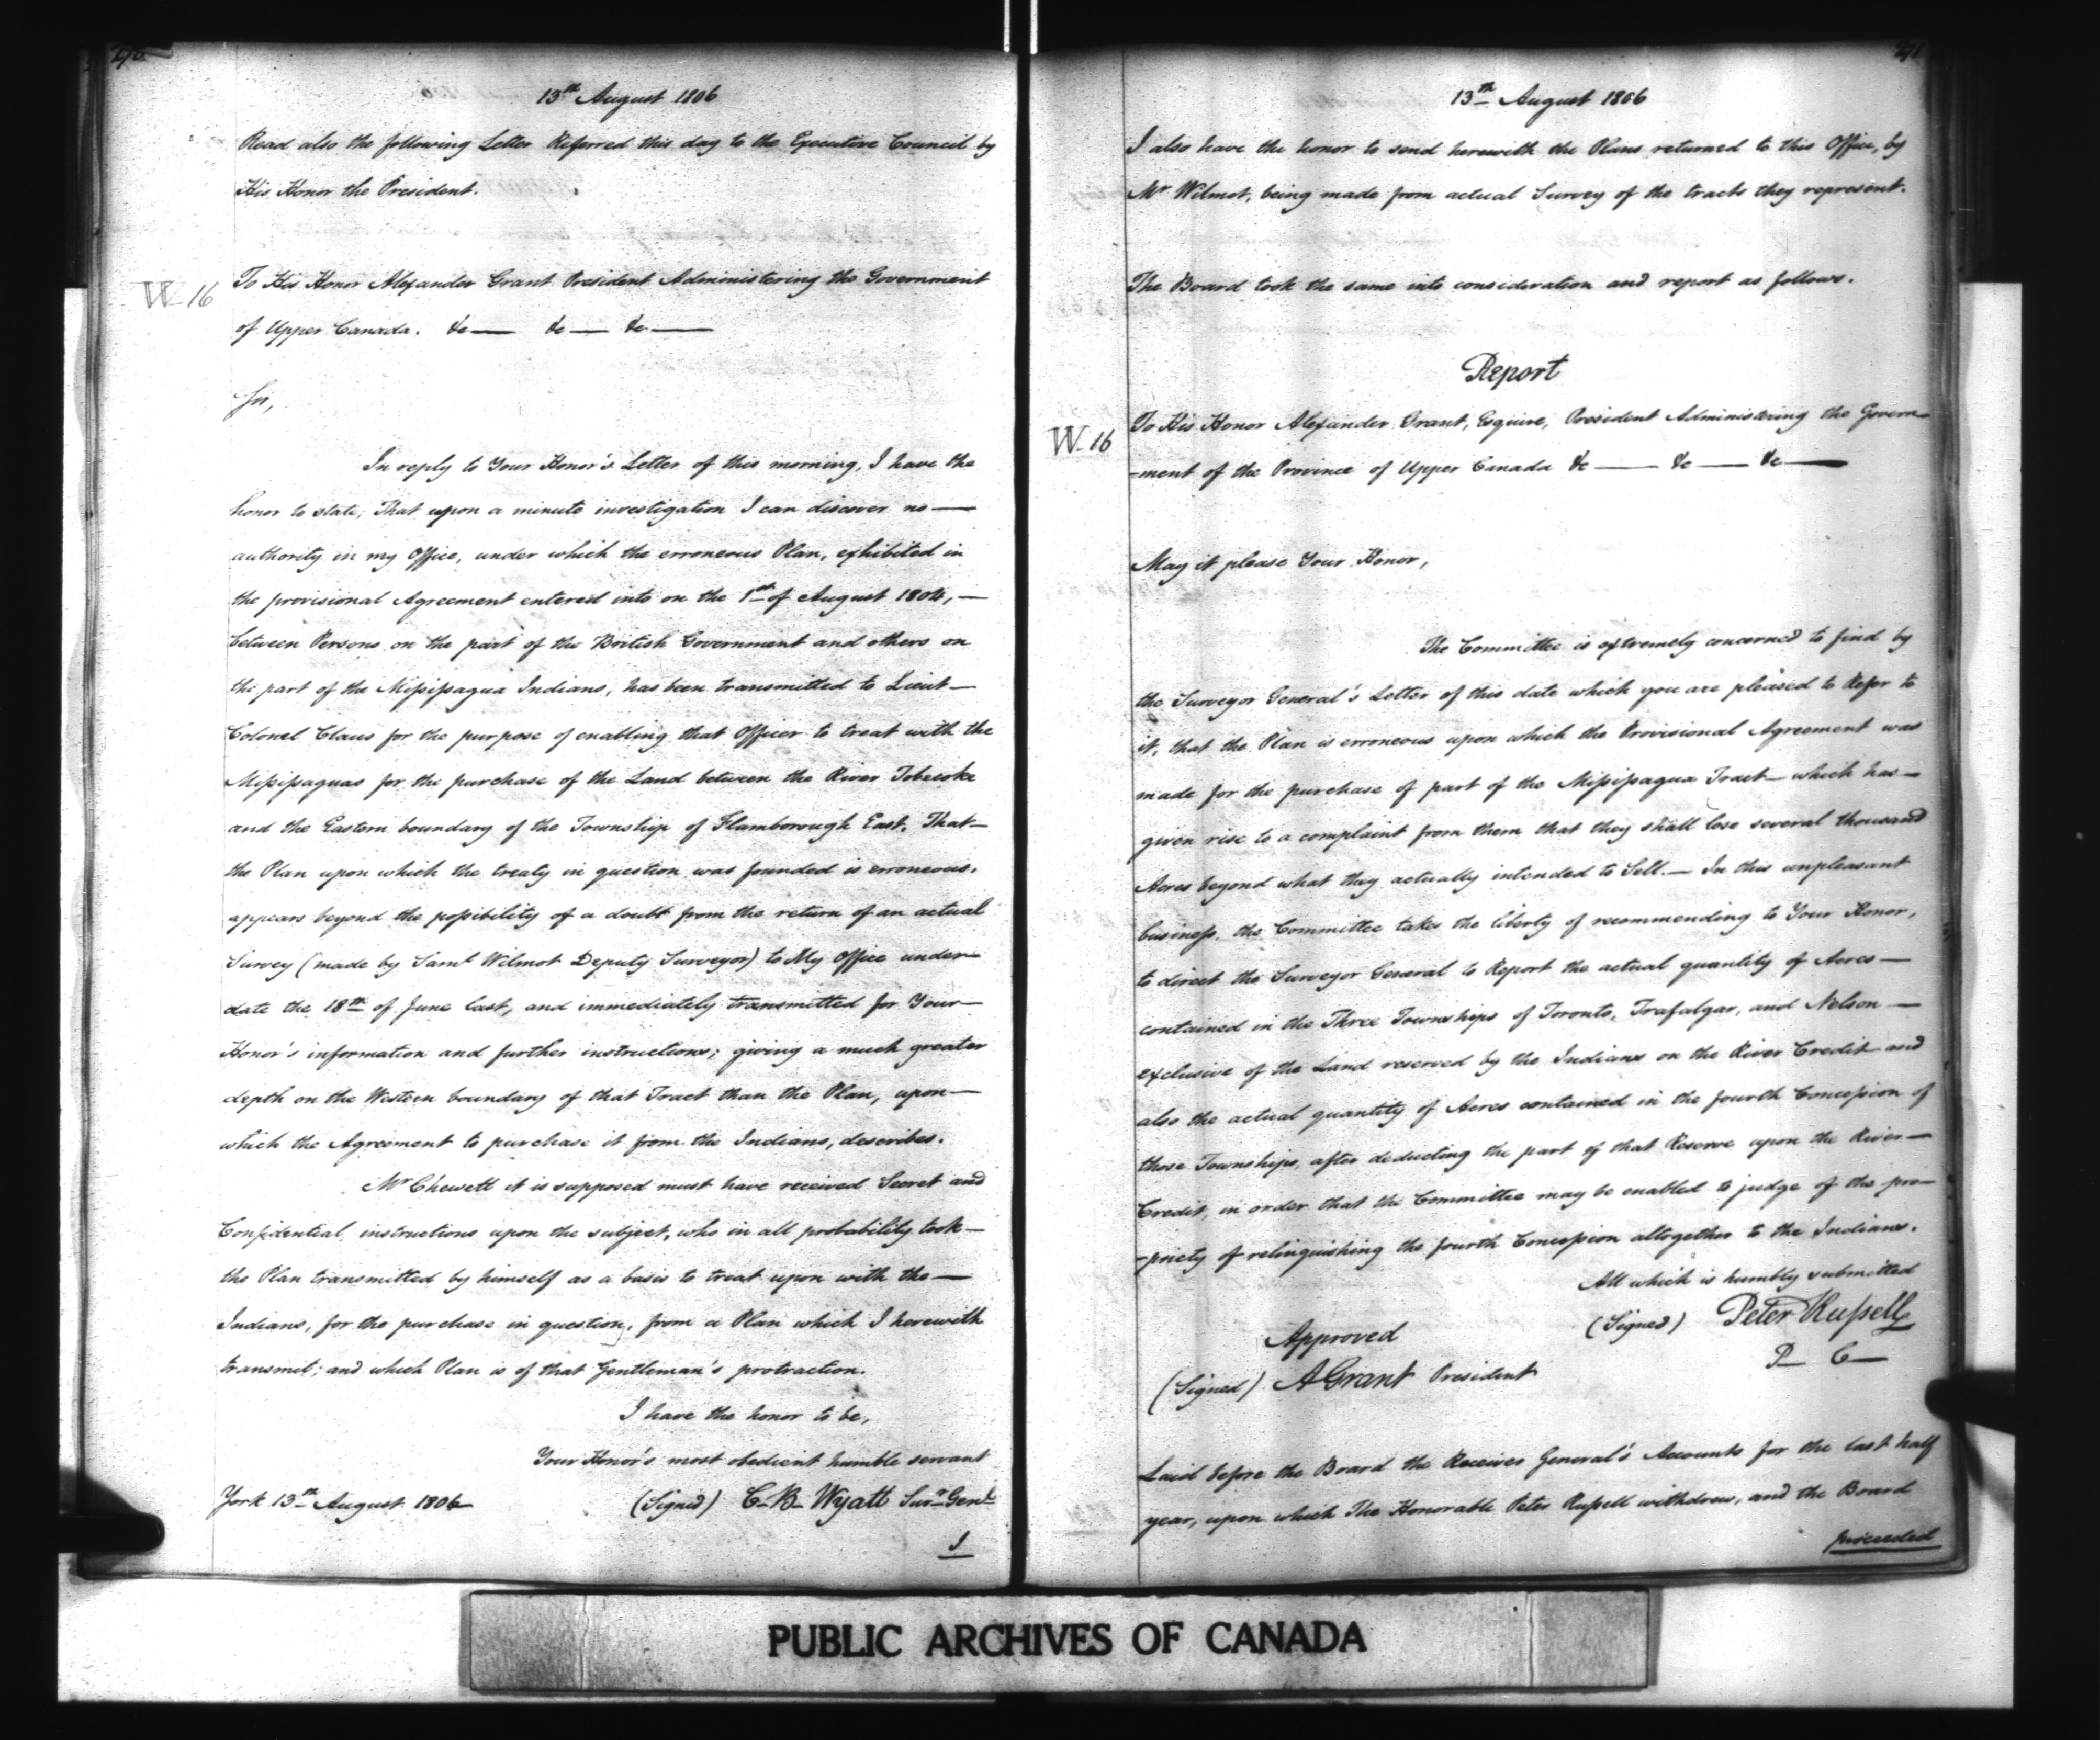 13th August 1806
Read also the following Letter Referred this day to the Executive Council by
His Honor the President.
W 16
To His Honor Alexander Grant President Administering the Government
of Upper Canada. &c — &c — &c —
Sir,
In reply to Your Honor's Letter of this morning, I have the
honor to state; That upon a minute investigation I can discover no —
authority in my Office, under which the erroneous Plan, exhibited in
the provisional Agreement entered into on the 1st of August 1804, —
between Persons on the part of the British Government and others on
the part of the Missisagua Indians, has been transmitted to Lieut —
Colonel Claus for the purpose of enabling that Officer to treat with the
Missisaguas for the purchase of the Land between the River Tobecoke
and the Eastern boundary of the Township of Flamborough East. That —
the Plan upon which the treaty in question was founded is erroneous,
appears beyond the possibility of a doubt from the return of an actual
Survey (made by Saml Wilmot Deputy Surveyor) to My Office under —
date the 18th of June last, and immediately transmitted for Your —
Honor's information and further instructions; giving a much greater
depth on the Western boundary of that Tract than the Plan, upon —
which the Agreement to purchase it from the Indians, describes.
Mr Chewett it is supposed must have received Secret and
Confidential instructions upon the subject, who in all probability took —
the Plan transmitted by himself as a basis to treat upon with the —
Indians, for the purchase in question, from a Plan which I herewith
transmit; and which Plan is of that Gentleman's protraction.
I have the honor to be,
Your Honor's most obedient humble servant
York 13th August 1806
(Signed) C. B. Wyatt Surr Genl
I
13th August 1806
I also have the honor to send herewith the Plans returned to this Office, by
Mr Wilmot, being made from actual Survey of the tracts they represent.
The Board took the same into consideration and report as follows.
Report
W 16
To His Honor Alexander Grant, Esquire, President Administering the Govern-
-ment of the Province of Upper Canada &c — &c — &c —
May it please Your Honor,
The Committee is extremely concerned to find by
the Surveyor General's Letter of this date which you are pleased to Refer to
it, that the Plan is erroneous upon which the Provisional Agreement was
made for the purchase of part of the Missisagua Tract — which has —
given rise to a complaint from them that they shall lose several thousand
Acres beyond what they actually intended to Sell. — In this unpleasant
business, the Committee takes the liberty of recommending to Your Honor,
to direct the Surveyor General to Report the actual quantity of Acres —
contained in the Three Townships of Toronto, Trafalgar, and Nelson —
exclusive of the Land reserved by the Indians on the River Credit and
also the actual quantity of Acres contained in the fourth Concession of
those Townships, after deducting the part of that Reserve upon the River —
Credit, in order that the Committee may be enabled to judge of the pro-
-priety of relinquishing the fourth Concession altogether to the Indians.
All which is humbly submitted
(Signed) Peter Russell
P — C —
Approved
(Signed) A Grant President
Laid before the Board the Receiver General's Accounts for the last half
year, upon which The Honorable Peter Russell withdrew, and the Board
proceeded
PUBLIC ARCHIVES OF CANADA